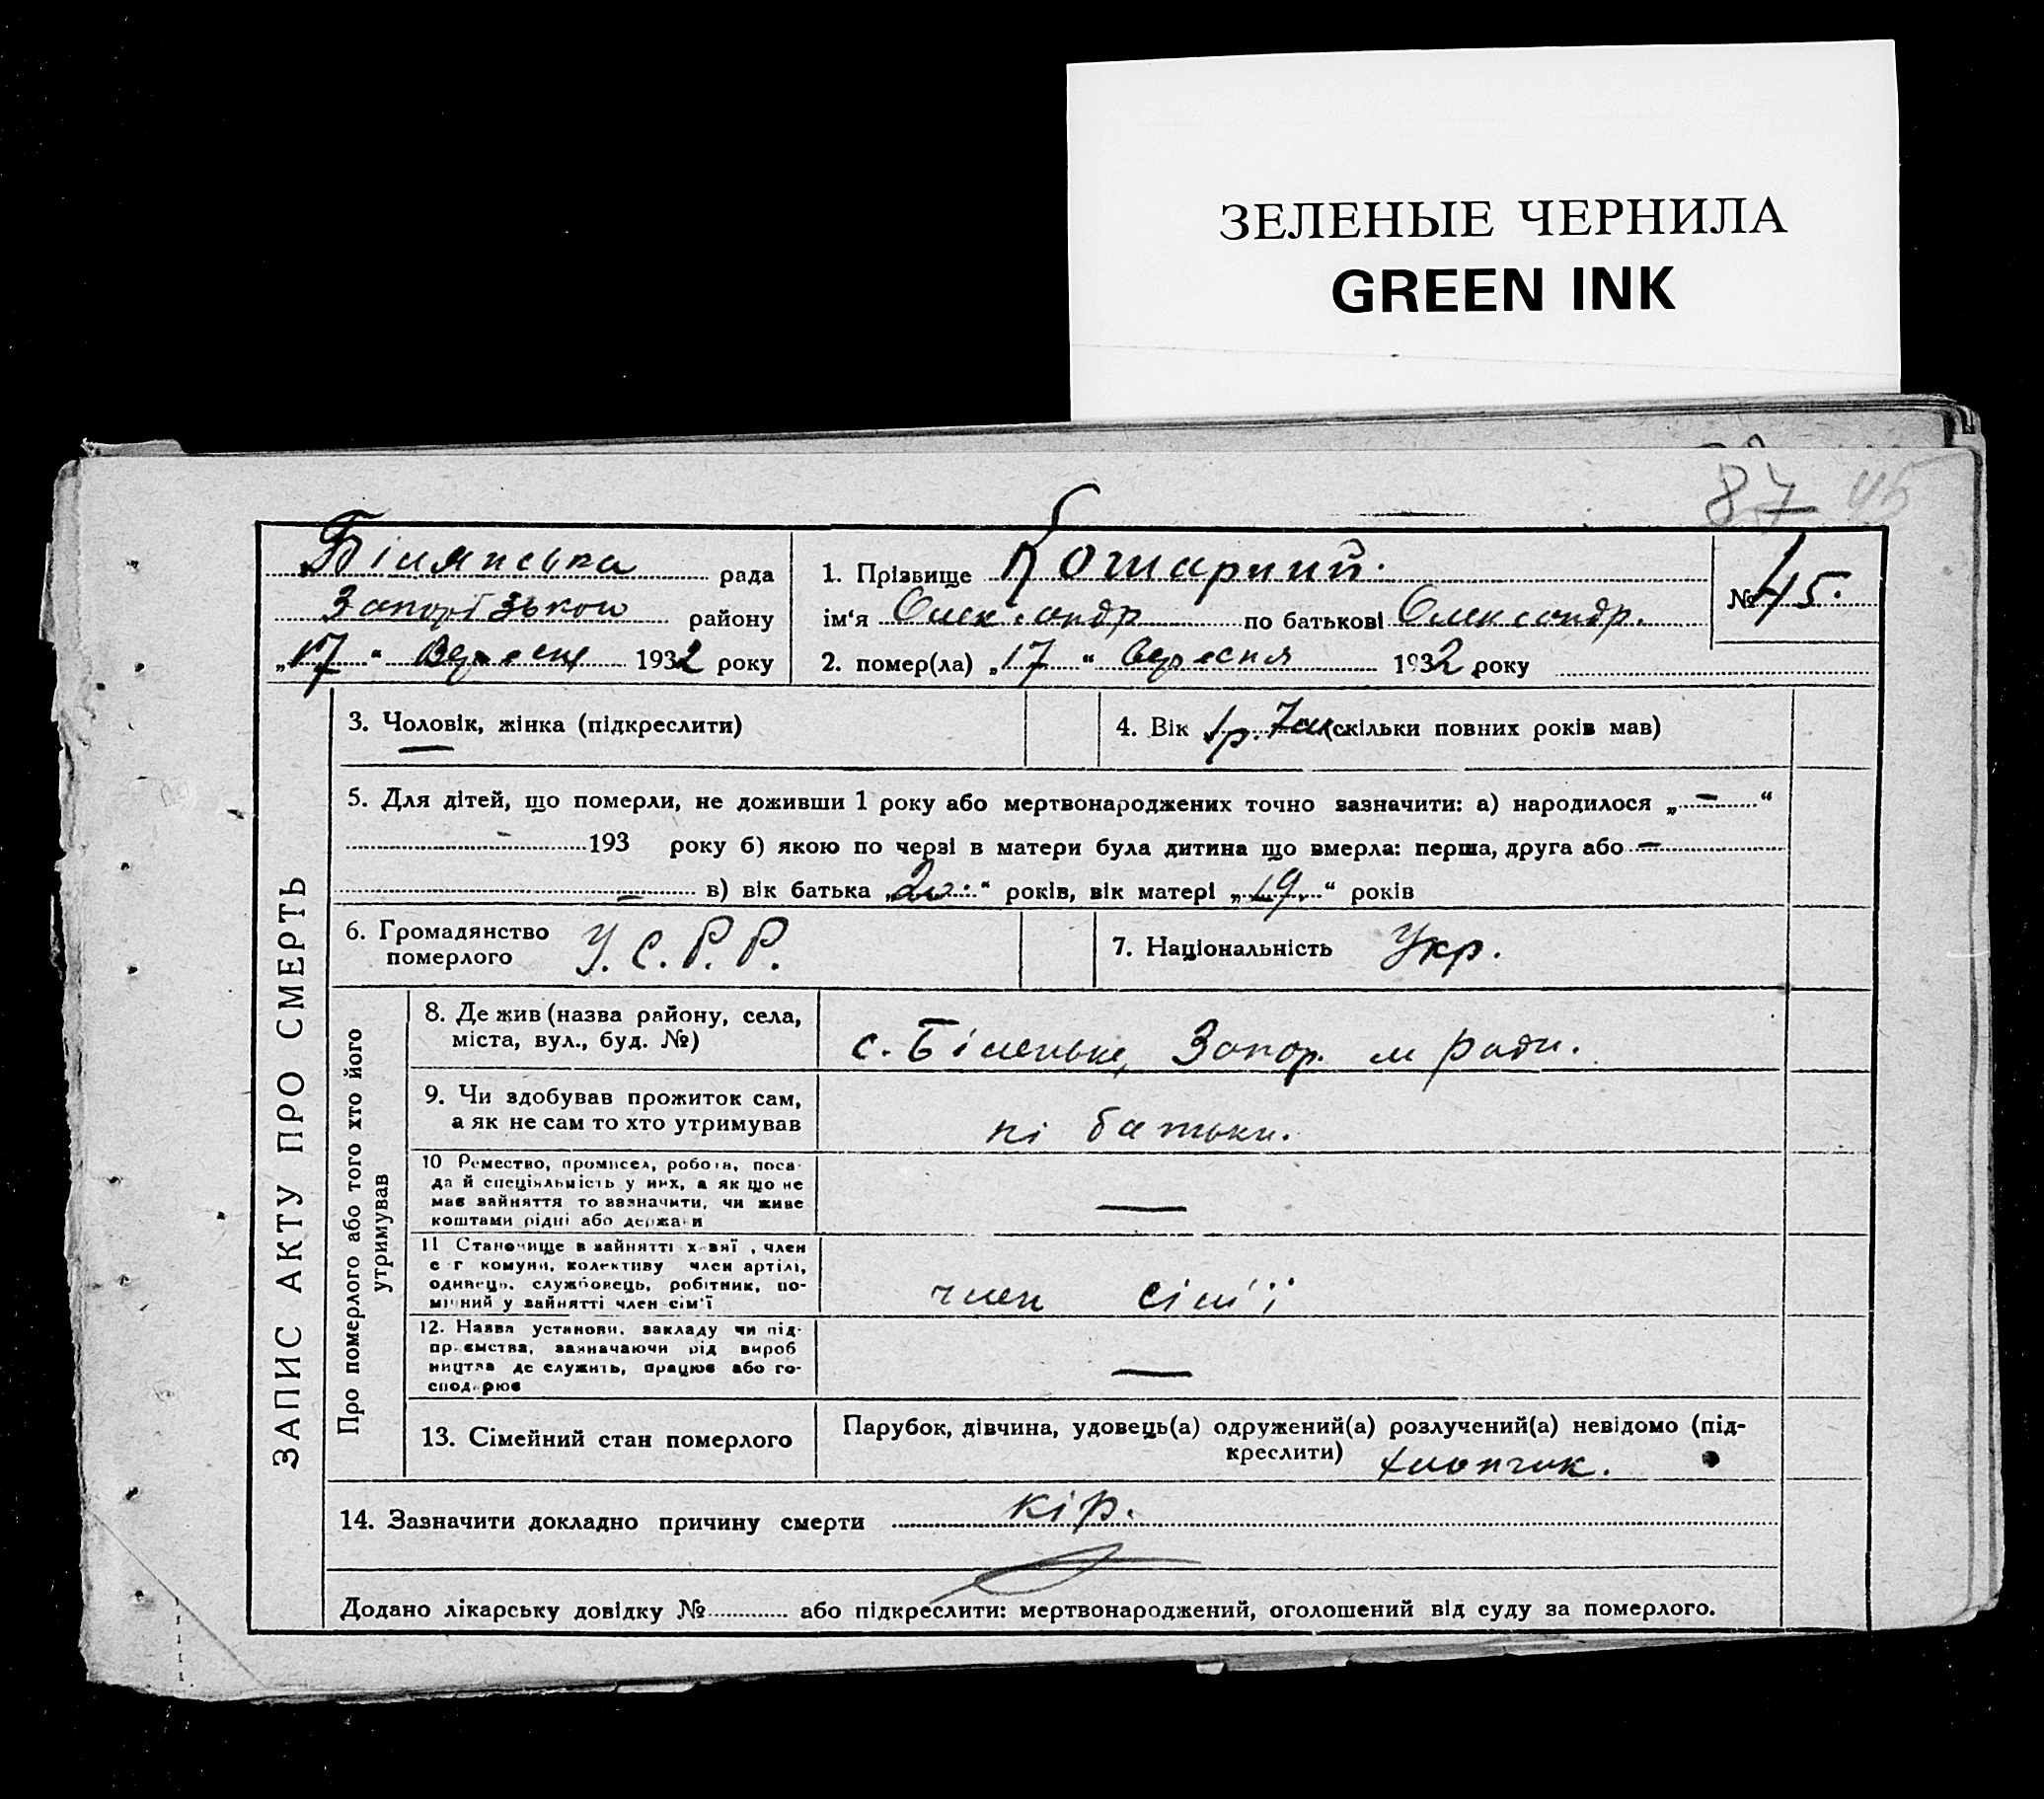 ЗЕЛЕНЫЕ ЧЕРНИЛА
GREEN INK
87 45
Білянська рада
Запорізької району
„17“ Вересня 1932 року
1. Прізвище Кошарний.
ім‘я Олександр по батькові Олександр.
2. помер(ла) „17“ Вересня 1932 року
№ 45.
ЗАПИС АКТУ ПРО СМЕРТЬ
3. Чоловік, жінка (підкреслити)
4. Вік 1р. 7м (скільки повних років мав)
5. Для дітей, що померли, не доживши 1 року або мертвонароджених точно зазначити: а) народилося „ — “
— 193 року б) якою по черві в матери була дитина що вмерла: перша, друга або —
— в) вік батька „20.“ років, вік матері „19.“ років
6. Громадянство
померлого У.С.Р.Р.
7. Національність Укр.
Про померлого або того хто його
утримував
8. Де жив (назва району, села,
міста, вул., буд. №)
с. Біленьке, Запор. м ради.
9. Чи здобував прожиток сам,
а як не сам то хто утримував
ні батьки.
10 Ремество, промисел, робота, поса-
да й спеціяльність у них, а як що не
має зайняття то зазначити, чи живе
коштами рідні або держави
—
11 Становище в зайнятті хазяї, член
с г комуни, колективу член артілі,
одинець, службовець, робітник, по-
мічний у зайнятті член сім‘ї
член сім'ї
12. Назва установи, закладу чи під-
приємства, зазначаючи рід вироб
ництва де служить, працює або го-
сподарює
—
13. Сімейний стан померлого
Парубок, дівчина, удовець(а) одружений(а) розлучений(а) невідомо (під-
креслити) хлопчик.
14. Зазначити докладно причину смерти кір.
Додано лікарську довідку № або підкреслити: мертвонароджений, оголошений від суду за померлого.